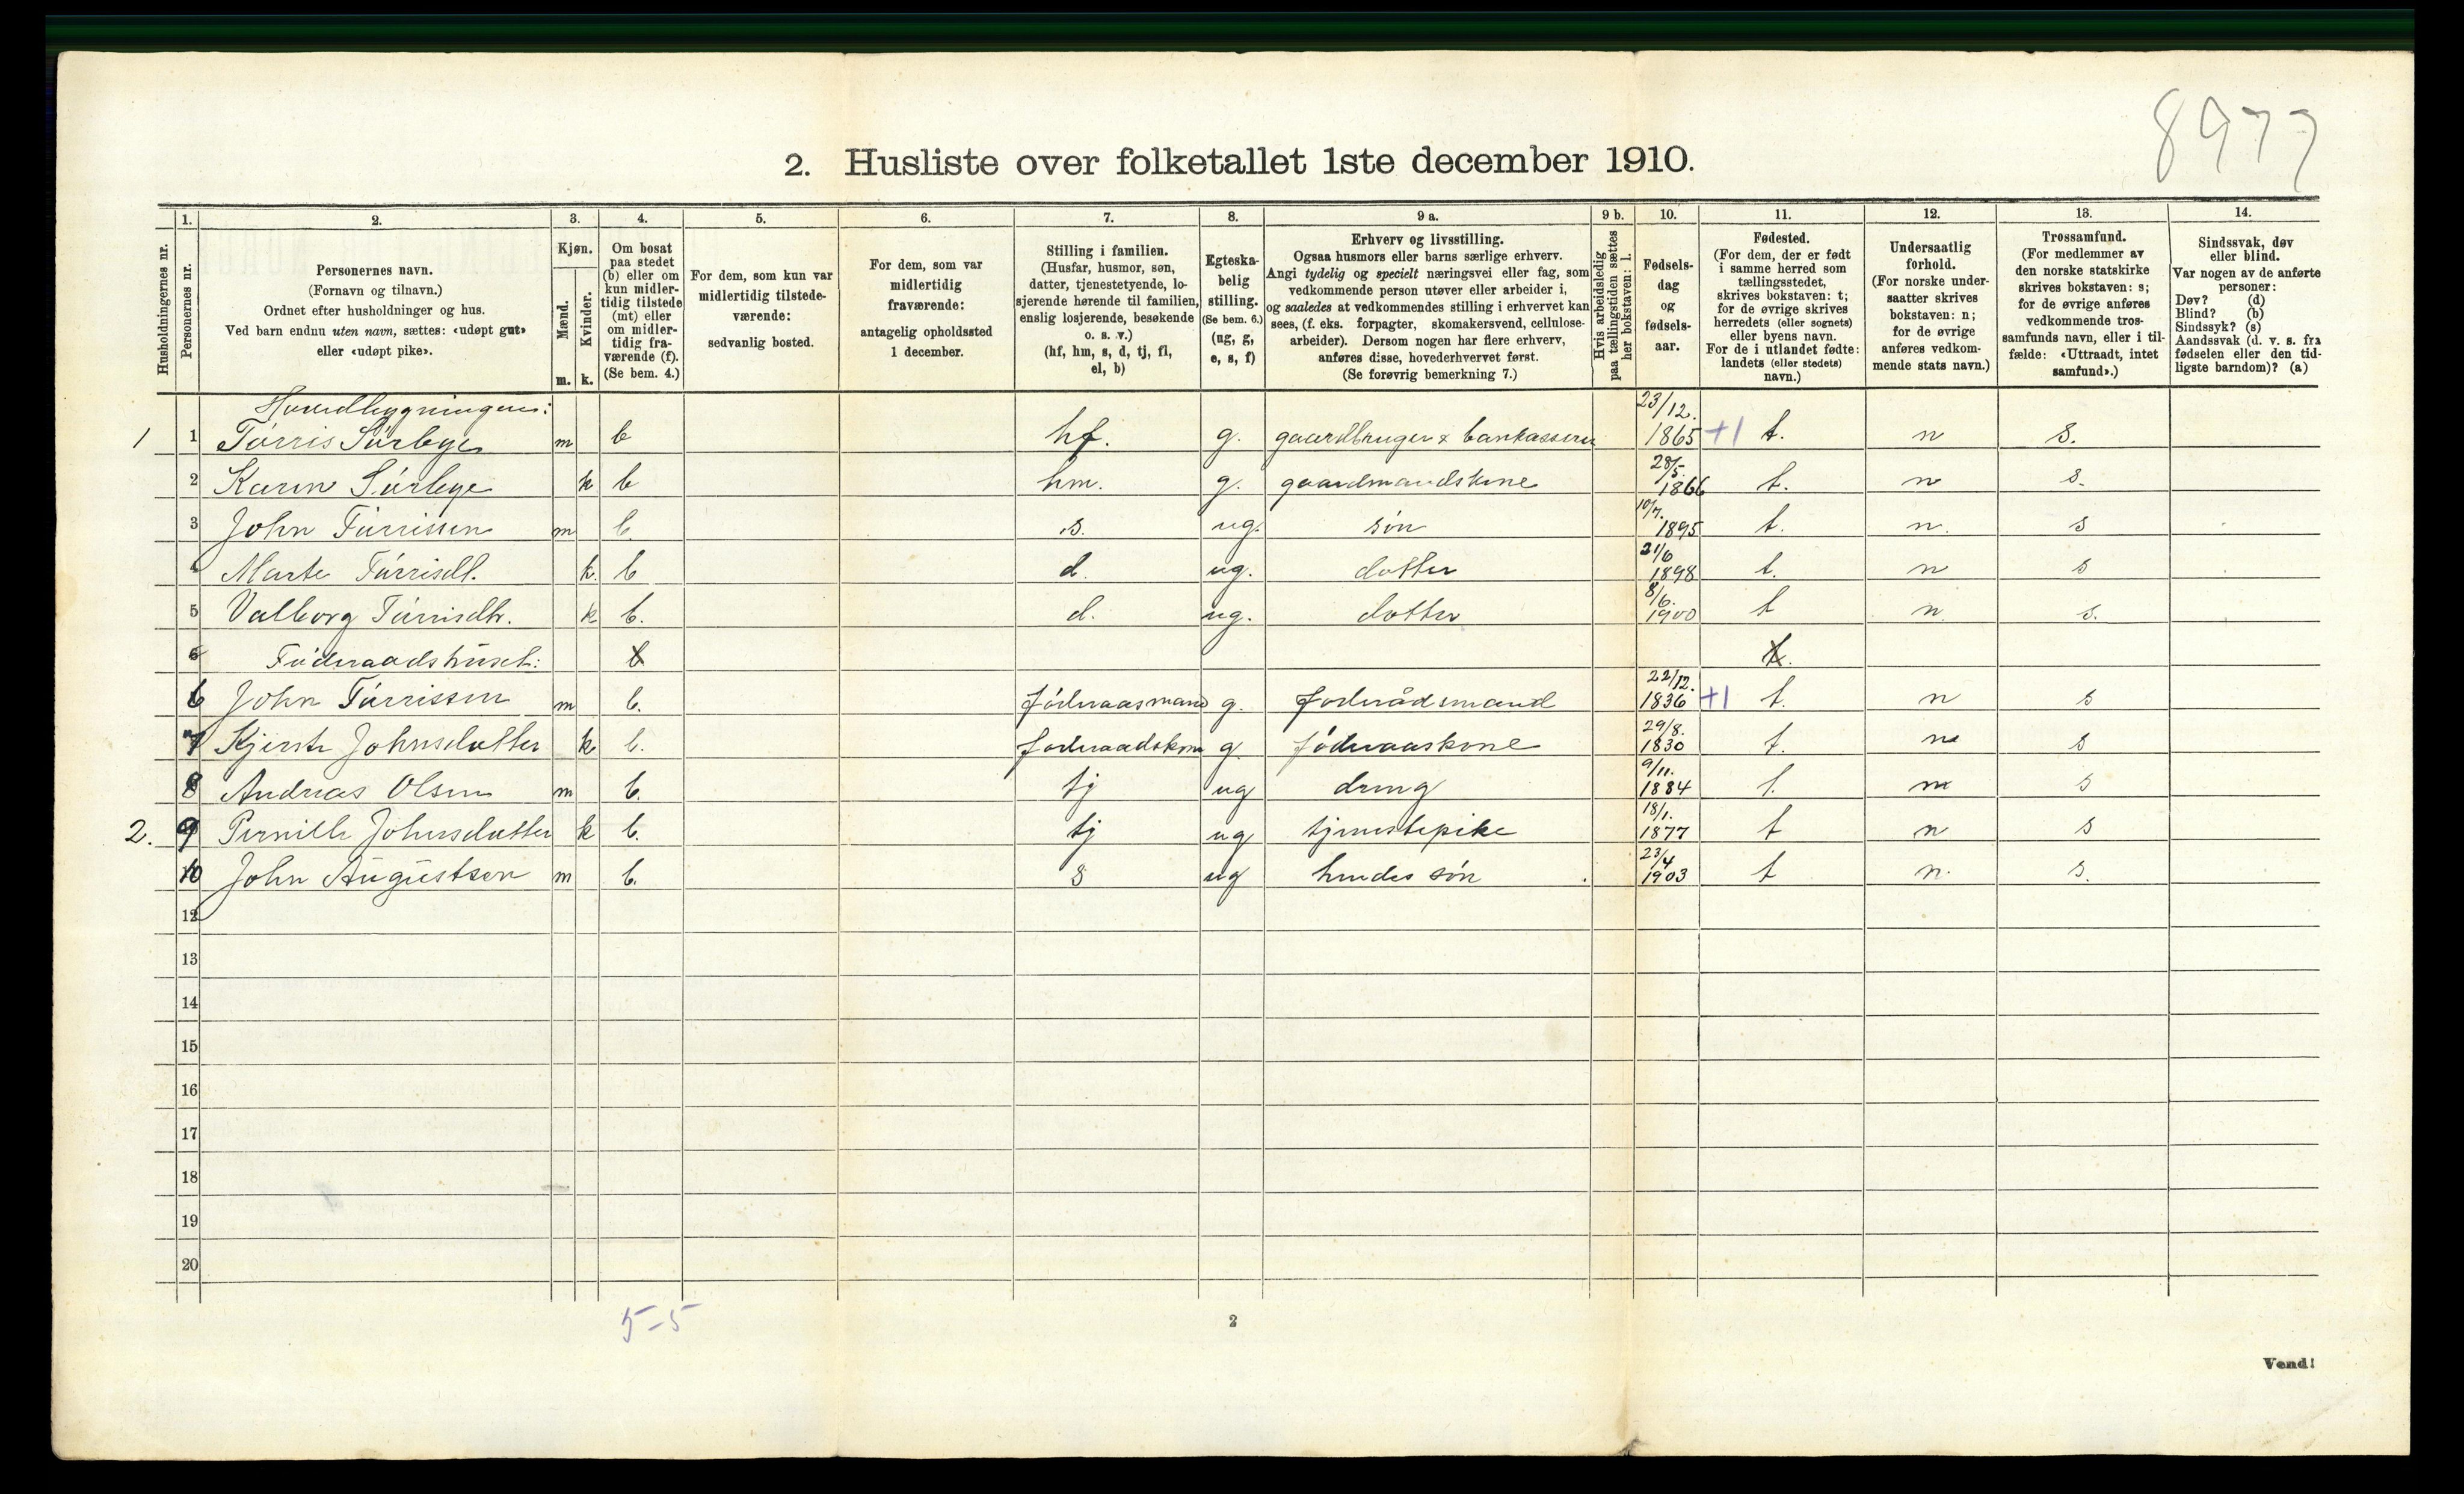 8977
2. Husliste over folketallet 1ste december 1910.
Husholdningernes nr.
1.
Personernes nr.
2.
Personernes navn.
(Fornavn og tilnavn.)
Ordnet efter husholdninger og hus.
Ved barn endnu uten navn, sættes: «udøpt gut»
eller «udøpt pike».
3.
Kjøn.
Mænd.
Kvinder.
m. k.
4.
Om bosat
paa stedet
(b) eller om
kun midler-
tidig tilstede
(mt) eller
om midler-
tidig fra-
værende (f).
(Se bem. 4.)
5.
For dem, som kun var
midlertidig tilstede-
værende:
sedvanlig bosted.
6.
For dem, som var
midlertidig
fraværende:
antagelig opholdssted
1 december.
7.
Stilling i familien.
(Husfar, husmor, søn,
datter, tjenestetyende, lo-
sjerende hørende til familien,
enslig losjerende, besøkende
o. s. v.)
(hf, hm, s, d, tj, fl,
el, b)
8.
Egteska-
belig
stilling.
(Se bem. 6.)
(ug, g,
e, s, f)
9 a.
Erhverv og livsstilling.
Ogsaa husmors eller barns særlige erhverv.
Angi tydelig og specielt næringsvei eller fag, som
vedkommende person utøver eller arbeider i,
og saaledes at vedkommendes stilling i erhvervet kan
sees, (f. eks. forpagter, skomakersvend, cellulose-
arbeider). Dersom nogen har flere erhverv,
anføres disse, hovederhvervet først.
(Se forøvrig bemerkning 7.)
9 b.
Hvis arbeidsledig
paa tællingstiden sættes
her bokstaven: l.
10.
Fødsels-
dag
og
fødsels-
aar.
11.
Fødested.
(For dem, der er født
i samme herred som
tællingsstedet,
skrives bokstaven: t;
for de øvrige skrives
herredets (eller sognets)
eller byens navn.
For de i utlandet fødte:
landets (eller stedets)
navn.)
12.
Undersaatlig
forhold.
(For norske under-
saatter skrives
bokstaven: n;
for de øvrige
anføres vedkom-
mende stats navn.)
13.
Trossamfund.
(For medlemmer av
den norske statskirke
skrives bokstaven: s;
for de øvrige anføres
vedkommende tros-
samfunds navn, eller i til-
fælde: «Uttraadt, intet
samfund».)
14.
Sindssvak, døv
eller blind.
Var nogen av de anførte
personer:
Døv? (d)
Blind? (b)
Sindssyk? (s)
Aandssvak (d. v. s. fra
fødselen eller den tid-
ligste barndom)? (a)
Hovedbygningen:
1 1 Tørris Sørbye m b hf. g. gaardbruger & bankasserer 23/12. 1865 +1 t. n s.
2 Karen Sørbye k b hm. g. gaardmandskone 28/5. 1866 t. n s.
3 John Tørrissen m b. s. ug. søn 10/7. 1895 t. n. s
4 Marte Tørrisdt. k. b d. ug. datter 21/6 1898 t. n s
5 Valborg Tørrisdtr. k b. d. ug. datter 8/6. 1900 t n s.
6 Føderaadshuset: b t.
6 John Tørrissen m b. føderaasmand g. foderådsmand 22/12. 1836 +1 t. n s
7 Kjersti Johnsdatter k b. føderaadskone g føderaaskone 29/8. 1830 t. n s
8 Andreas Olsen m b. tj ug dreng 9/11. 1884 t. n s
2. 9 Pernille Johnsdatter k b. tj ug tjenestepike 18/1. 1877 t n s
10 John Augustsen m b. s ug hendes søn 23/4 1903 t n. s.
12
13
14
15
16
17
18
19
20
5-5
2
Vend!